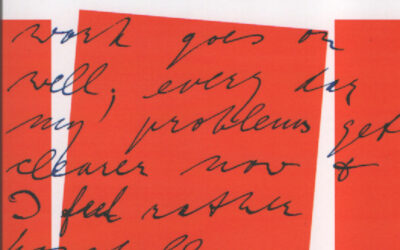 work goes on
well; every day
my problems get
clearer now &
I feel rather